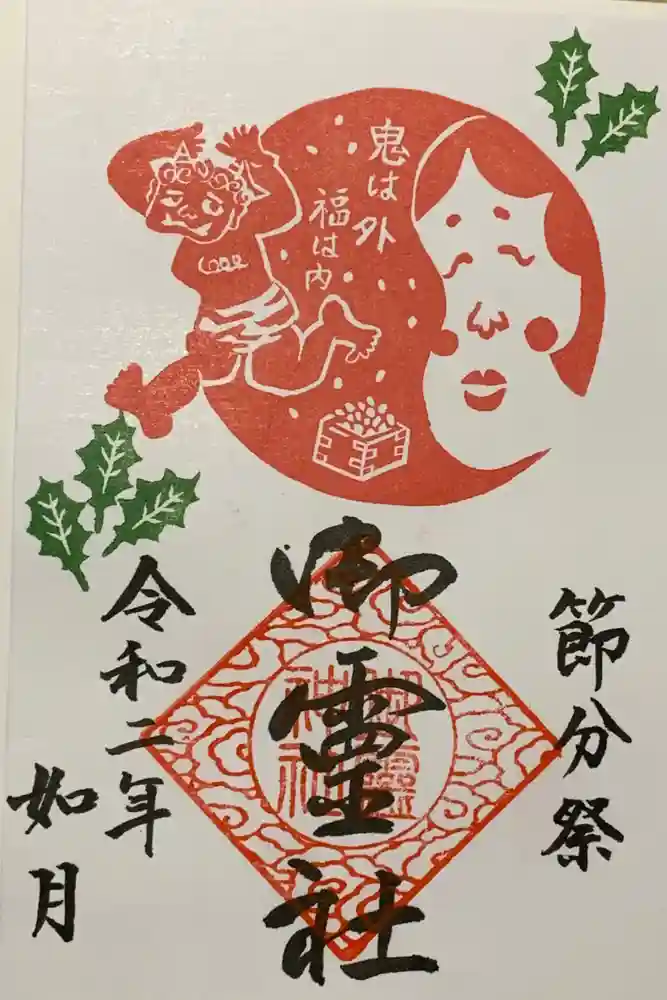 鬼は外
福は内
節分祭
御霊社
御靈
神社
令和二年
如月